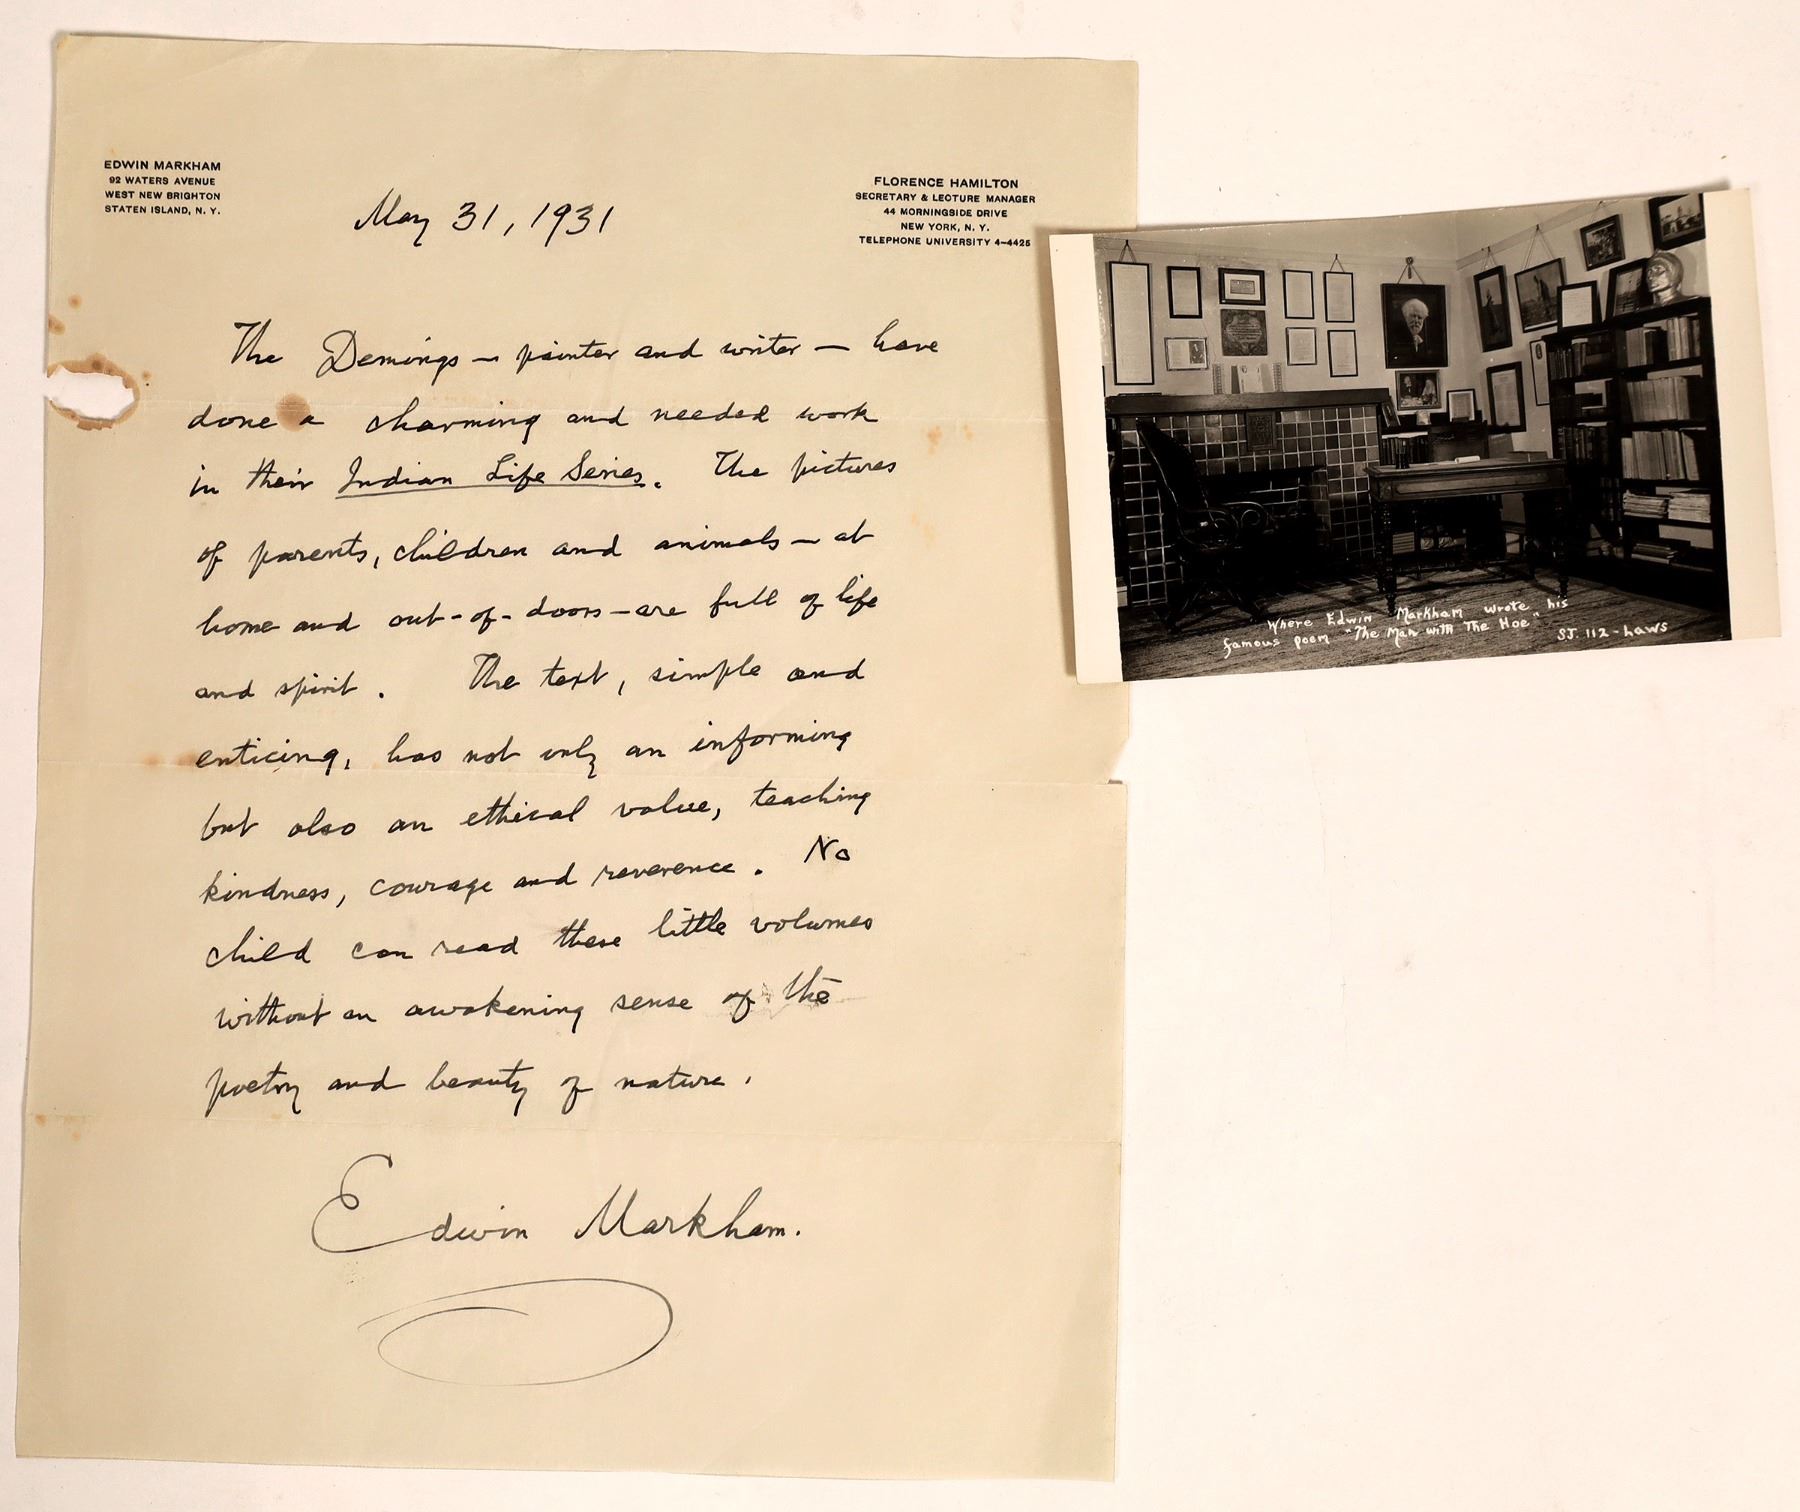 EDWIN MARKHAM
92 WATERS AVENUE
WEST NEW BRIGHTON
STATEN ISLAND, N. Y.
May 31, 1931
FLORENCE HAMILTON
SECRETARY & LECTURE MANAGER
44 MORNINGSIDE DRIVE
NEW YORK, N. Y.
TELEPHONE UNIVERSITY 4-4425
The Demings — painter and writer — have
done a charming and needed work
in their Indian Life Series. The pictures
of parents, children and animals — at
home and out-of-doors — are full of life
and spirit. The text, simple and
enticing, has not only an informing
but also an ethical value, teaching
kindness, courage and reverence. No
child can read these little volumes
without an awakening sense of the
poetry and beauty of nature.
Edwin Markham.
Where Edwin Markham wrote his
famous poem "The Man with The Hoe"
SJ. 112 - Laws